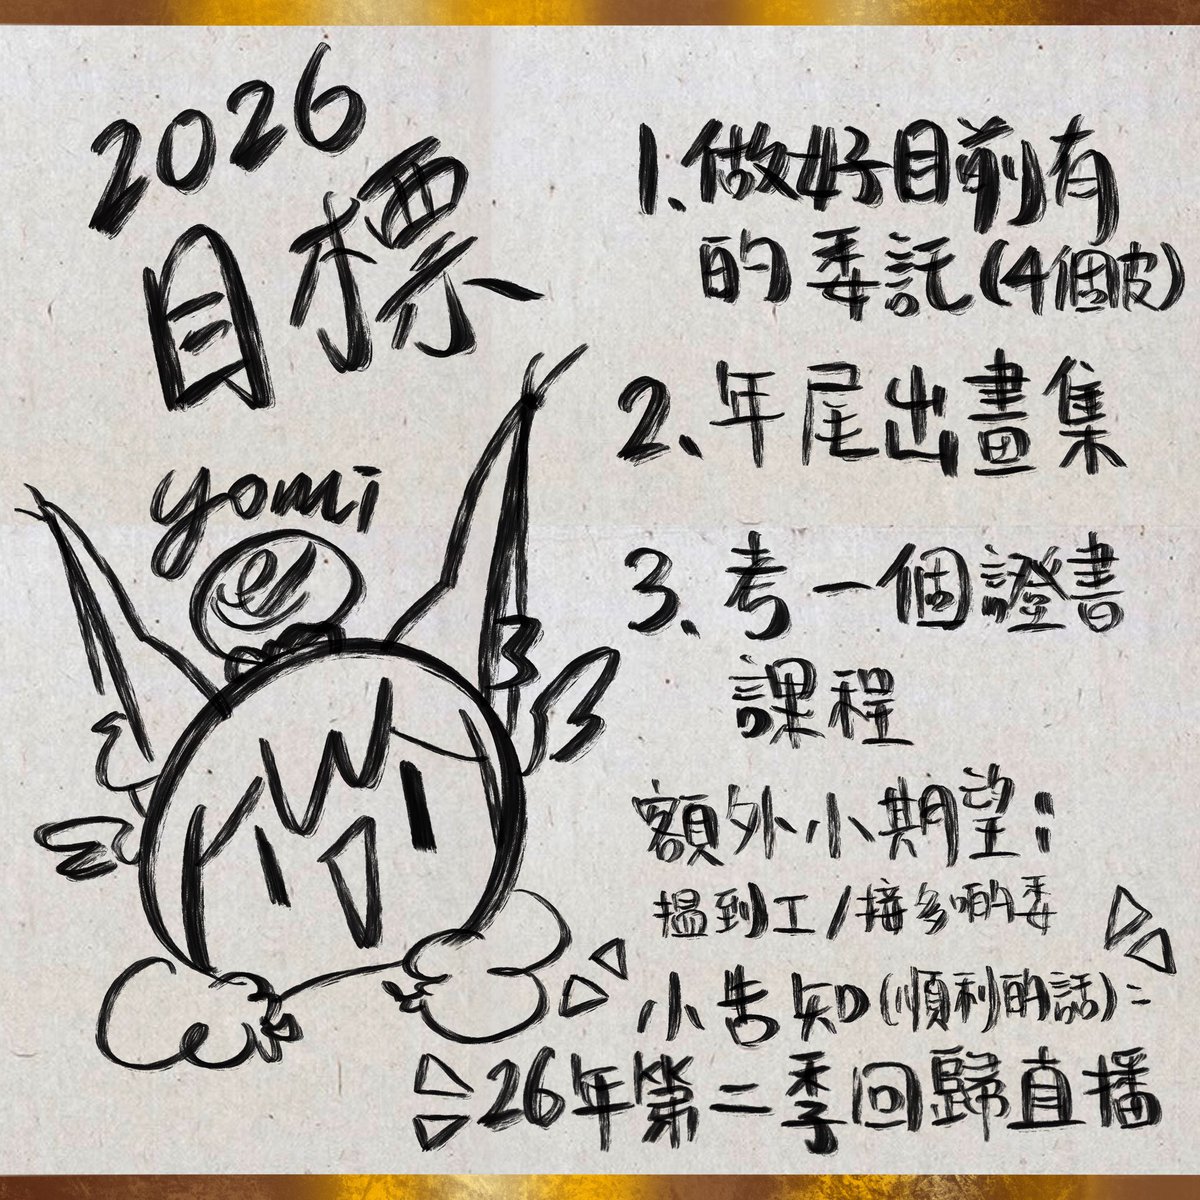 2026
目標
yomi
1.做好目前有
的委託(4個皮)
2、年尾出畫集
3、考一個證書
課程
額外小期望：
搵到工/接多啲的委
小告知(順利的話)：
26年第二季回歸直播